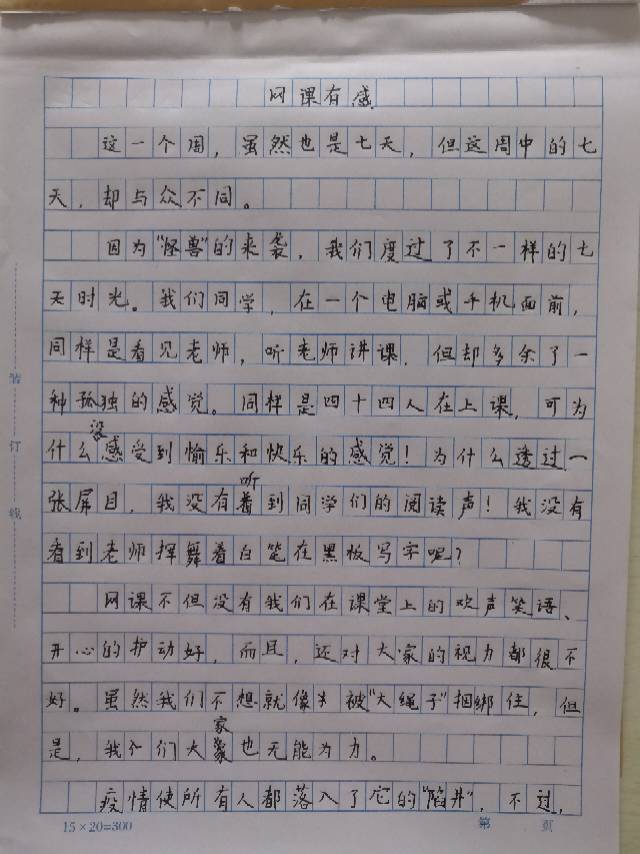 网课有感
这一个周，虽然也是七天，但这周中的七
天，却与众不同。
因为"怪兽"的来袭，我们度过了不一样的七
天时光。我们同学，在一个电脑或手机面前，
同样是看见老师，听老师讲课，但却多余了一
种孤独的感觉。同样是四十四人在上课，可为
什么没感受到愉乐和快乐的感觉！为什么透过一
张屏目，我没有听到同学们的阅读声！我没有
看到老师挥舞着白笔在黑板写字呢？
网课不但没有我们在课堂上的欢声笑语、
开心的护动好，而且，还对大家的视力都很不
好。虽然我们不想就像被"大绳子"捆绑住，但
是，我们大家也无能为力。
疫情使所有人都落入了它的"陷井"，不过，
15×20=300
第 页
装
订
线